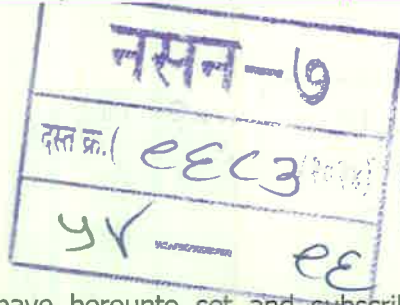 नसन-७
दस्त क्र.( ९६८३
५४ ९६
have hereunto set and subscri